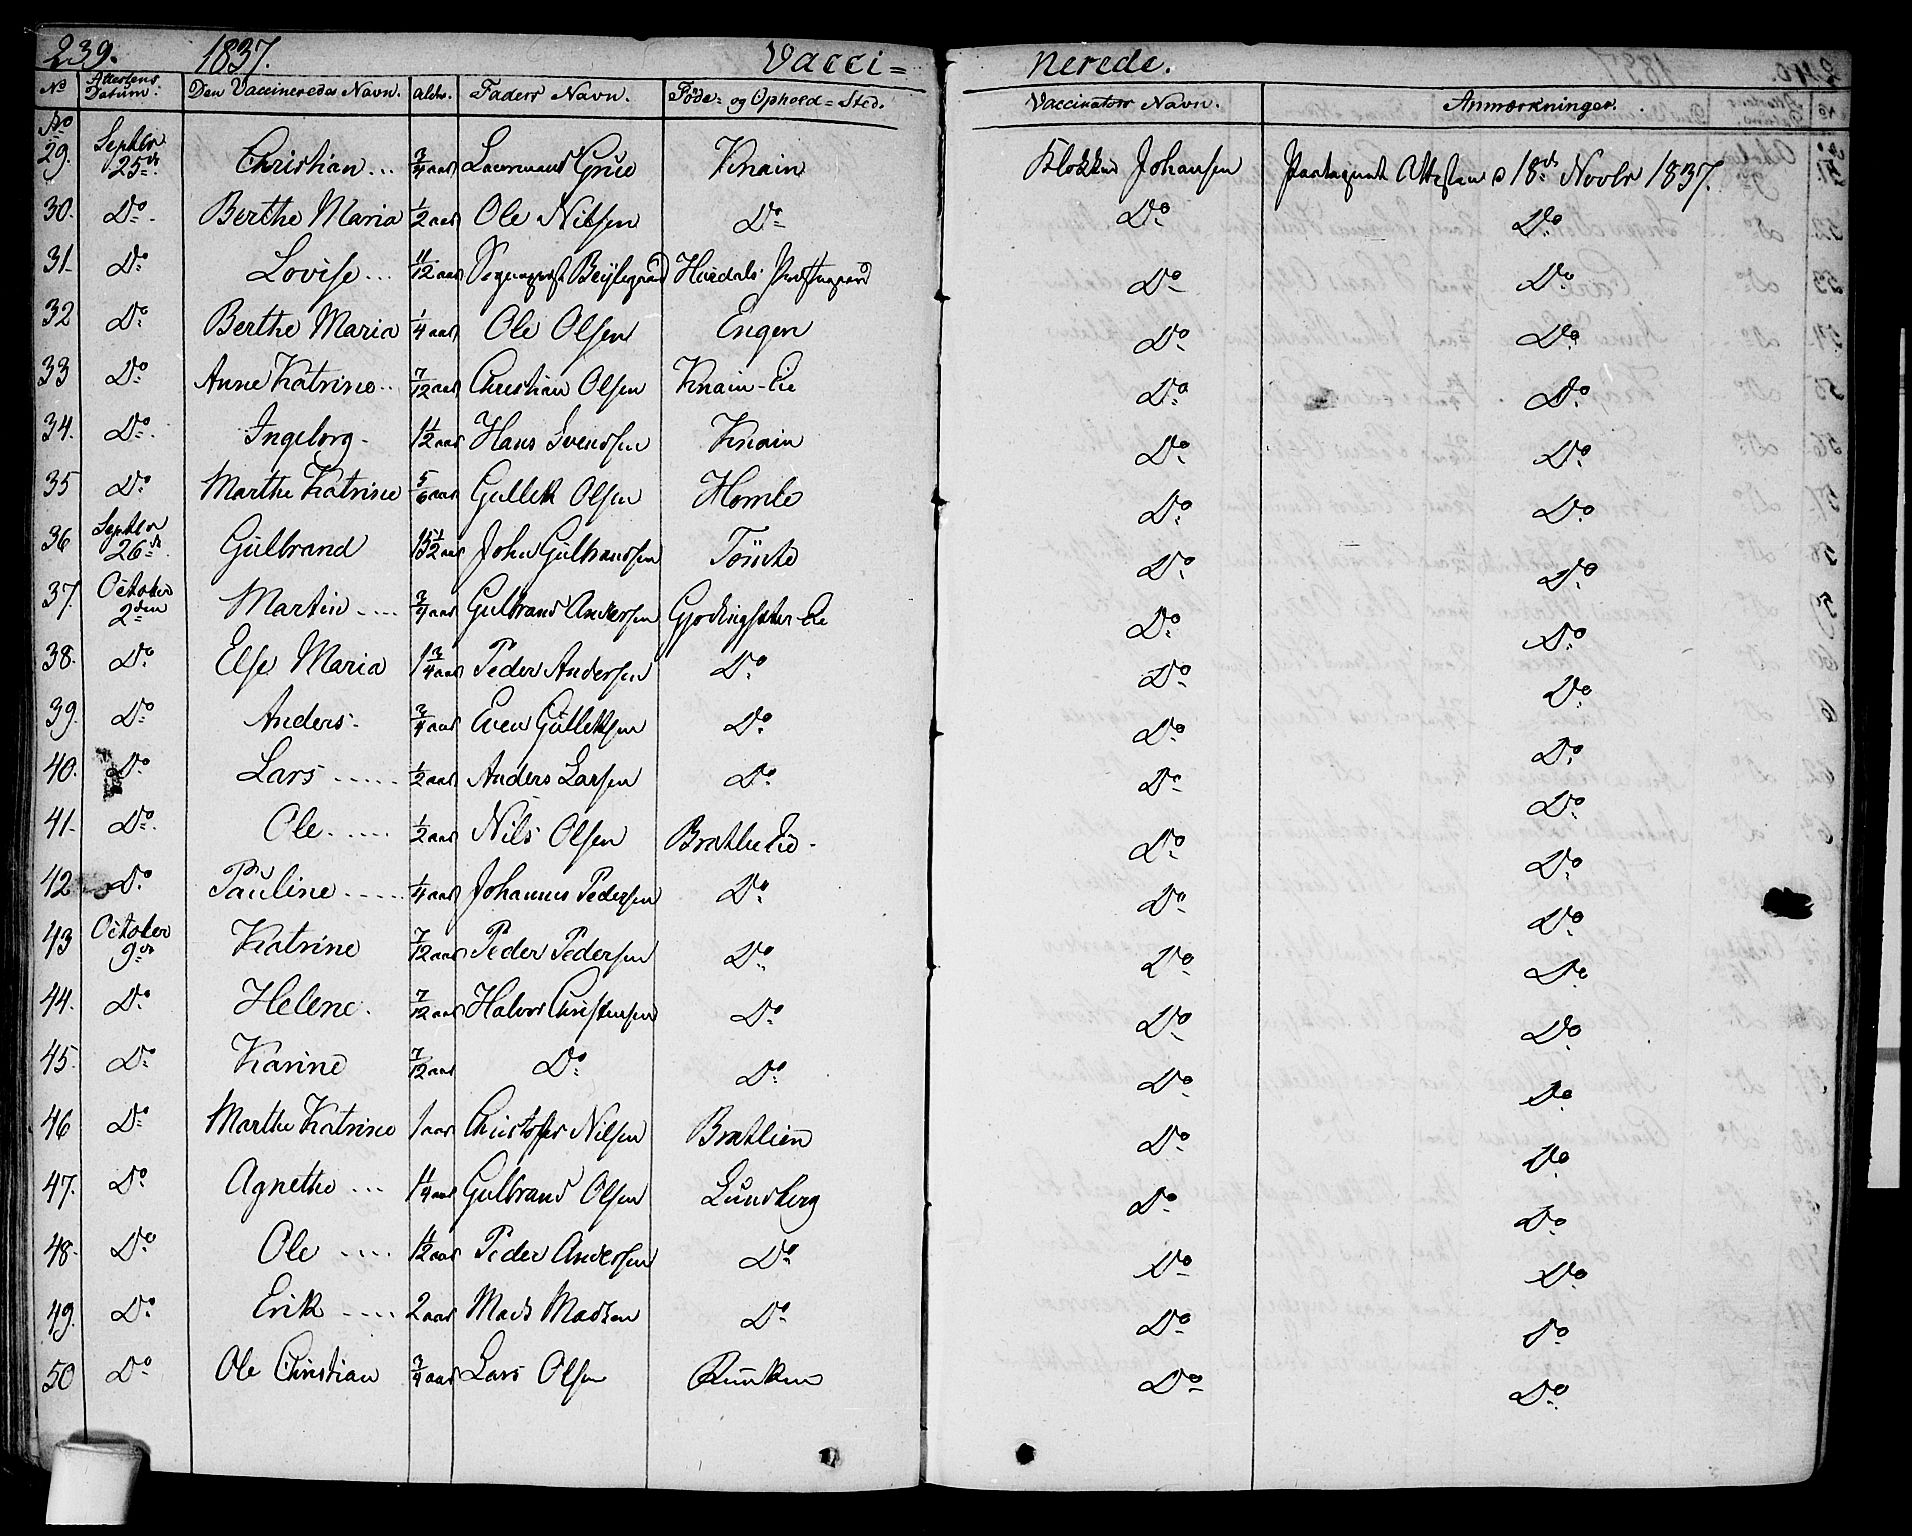 239. 1837. Vacci= nerede.
No Attestens Datum: Den Vaccineredes Navn. alder. Faders Navn. Föde= og Ophold=Sted. Vaccinators Navn. Anmærkninger.
No 29. Septbr 25de Christian... 3/4 aar Knain Klokker Johansen Attesten 18de Novbr 1837.
30. Do Berthe Maria 1/2 aar Ole Nilsen Do Do Do
31. Do Lovise... 11/12 aar Hurdals Præstegaard Do Do
32 Do Berthe Maria 1/4 aar Ole Olsen Engen Do Do
33 Do Anne Katrine.. 7/12 aar Christian Olsen Knain-Eie Do Do
34. Do Ingeborg- 1 1/2 aar Hans Svendsen Knain Do Do
35 Do Marthe Katrine 5/6 aar Gullek Olsen Homle Do Do
36 Septbr 26de Gülbrand aar John Gülbrandsen Tömte Do Do
37. October 2den Martin.... 3/4 aar Gulbrand Andersen Eie Do Do
38. Do Else Maria 1 3/4 aar Peder Andersen Do Do Do
39. Do Anders- 3/4 aar Even Gülleksen Do Do Do
40. Do Lars..... 1/2 aar Anders Larsen Do Do Do
41. Do Ole..... 1/2 aar Nils Olsen Bratlie Eie- Do Do
42 Do Pauline..... 1/4 aar Johannes Pedersen Do Do Do
43 October 9de Katrine 7/12 aar Peder Pedersen Do Do Do
44. Do Helene. 7/12 aar Halvor Christensen Do Do Do
45. Do Karine 7/12 aar Do Do Do Do
46 Do Marthe Katrine 1 aar Christofer Nilsen Bratlien Do Do
47. Do Agnethe... 1 1/4 aar Gulbrand Olsen Lundberg Do Do
48. Do Ole.... 1 1/2 aar Peder Andersen Do Do Do
49. Do Erik.... 2 aar Mads Madsen Do Do Do
50 Do Ole Christian 3/4 aar Lars Olsen Rünken Do Do